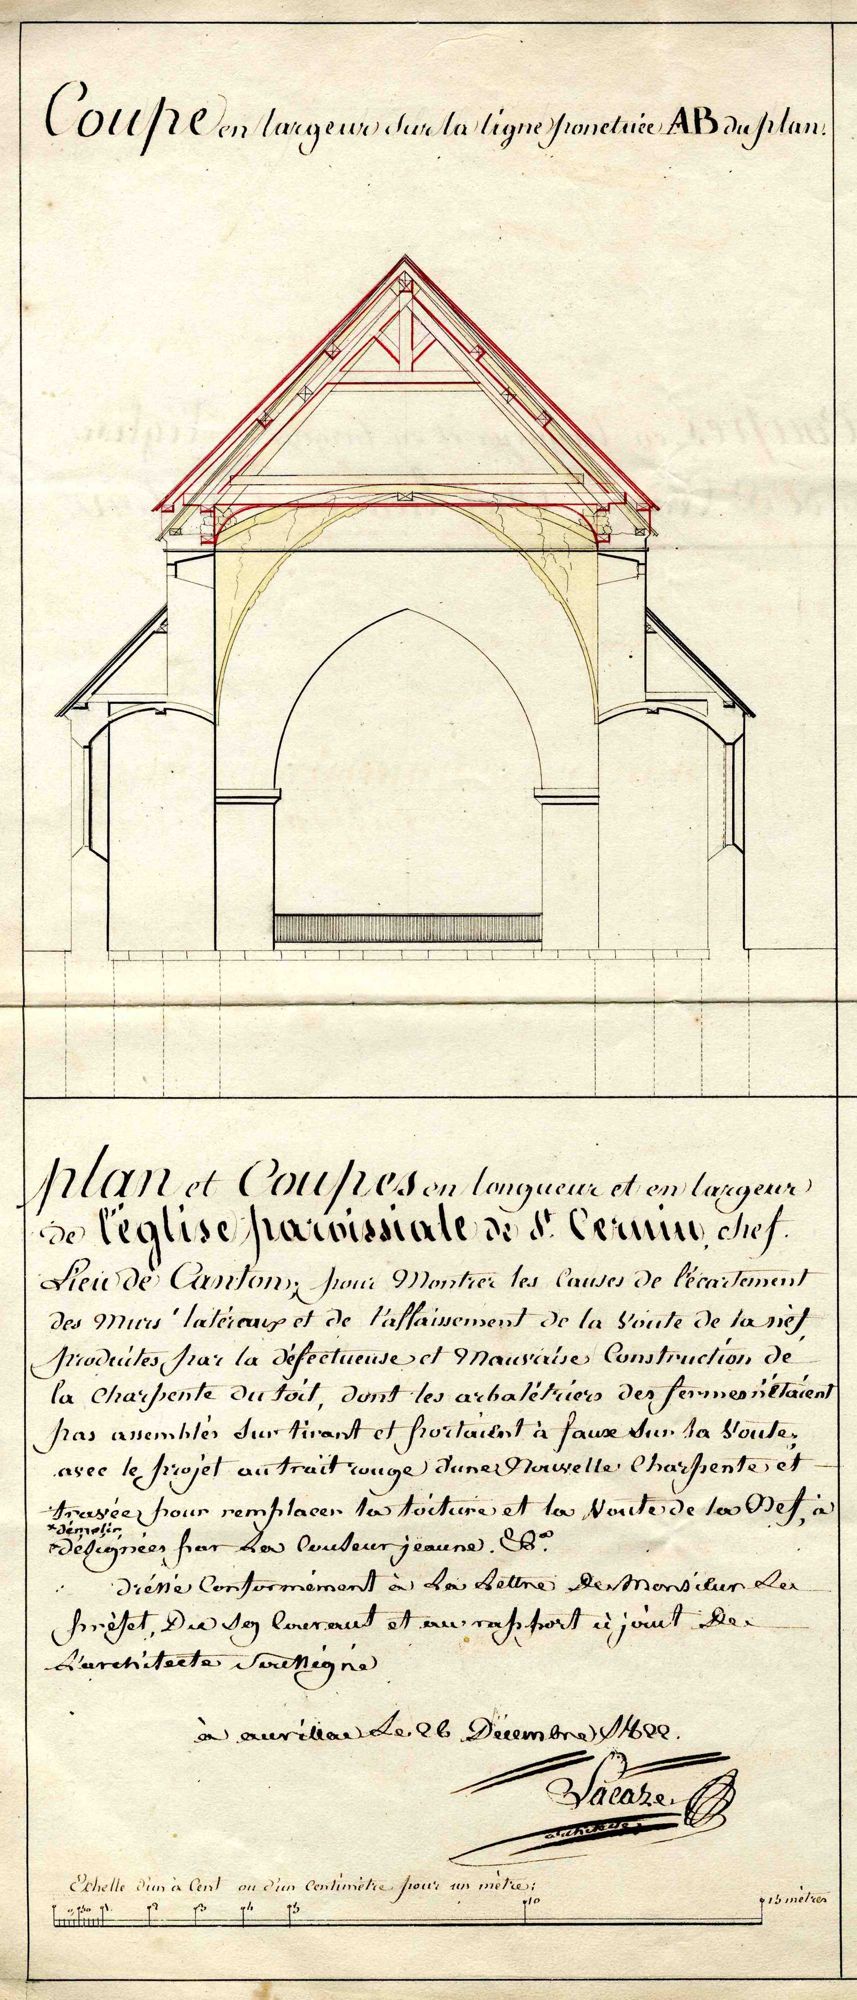 Coupe en largeur sur la ligne ponctuée AB du plan.
plan et Coupes en longueur et en largeur
de l'église paroissiale de St. Cernin, chef.
Lieu de Canton; pour Montrer les Causes de l'écartement
des Murs latéraux et de l'affaissement de la Voute de la nef
produites par la défectueuse et Mauvaise Construction de
la Charpente du toit, dont les arbalétriers des fermes n'étaient
pas assemblés sur tirant et portaient à faux sur la Voute,
avec le projet au trait rouge d'une Nouvelle Charpente et
travée pour remplacer la toiture et la Voute de la Nef, à
démolir
désignées par La Couleur jeaune.
dréssé Conformément à La Lettre De Monsieur Le
préfet, Du Courant et au rapport ci joint De
L'architecte Soussigné
à aurillac Le 26 Décembre 1822.
Lacaze
architecte
Echelle d'un à Cent ou d'un Centimètre pour un mètre;
1 2 3 4 5 10 15 mètres